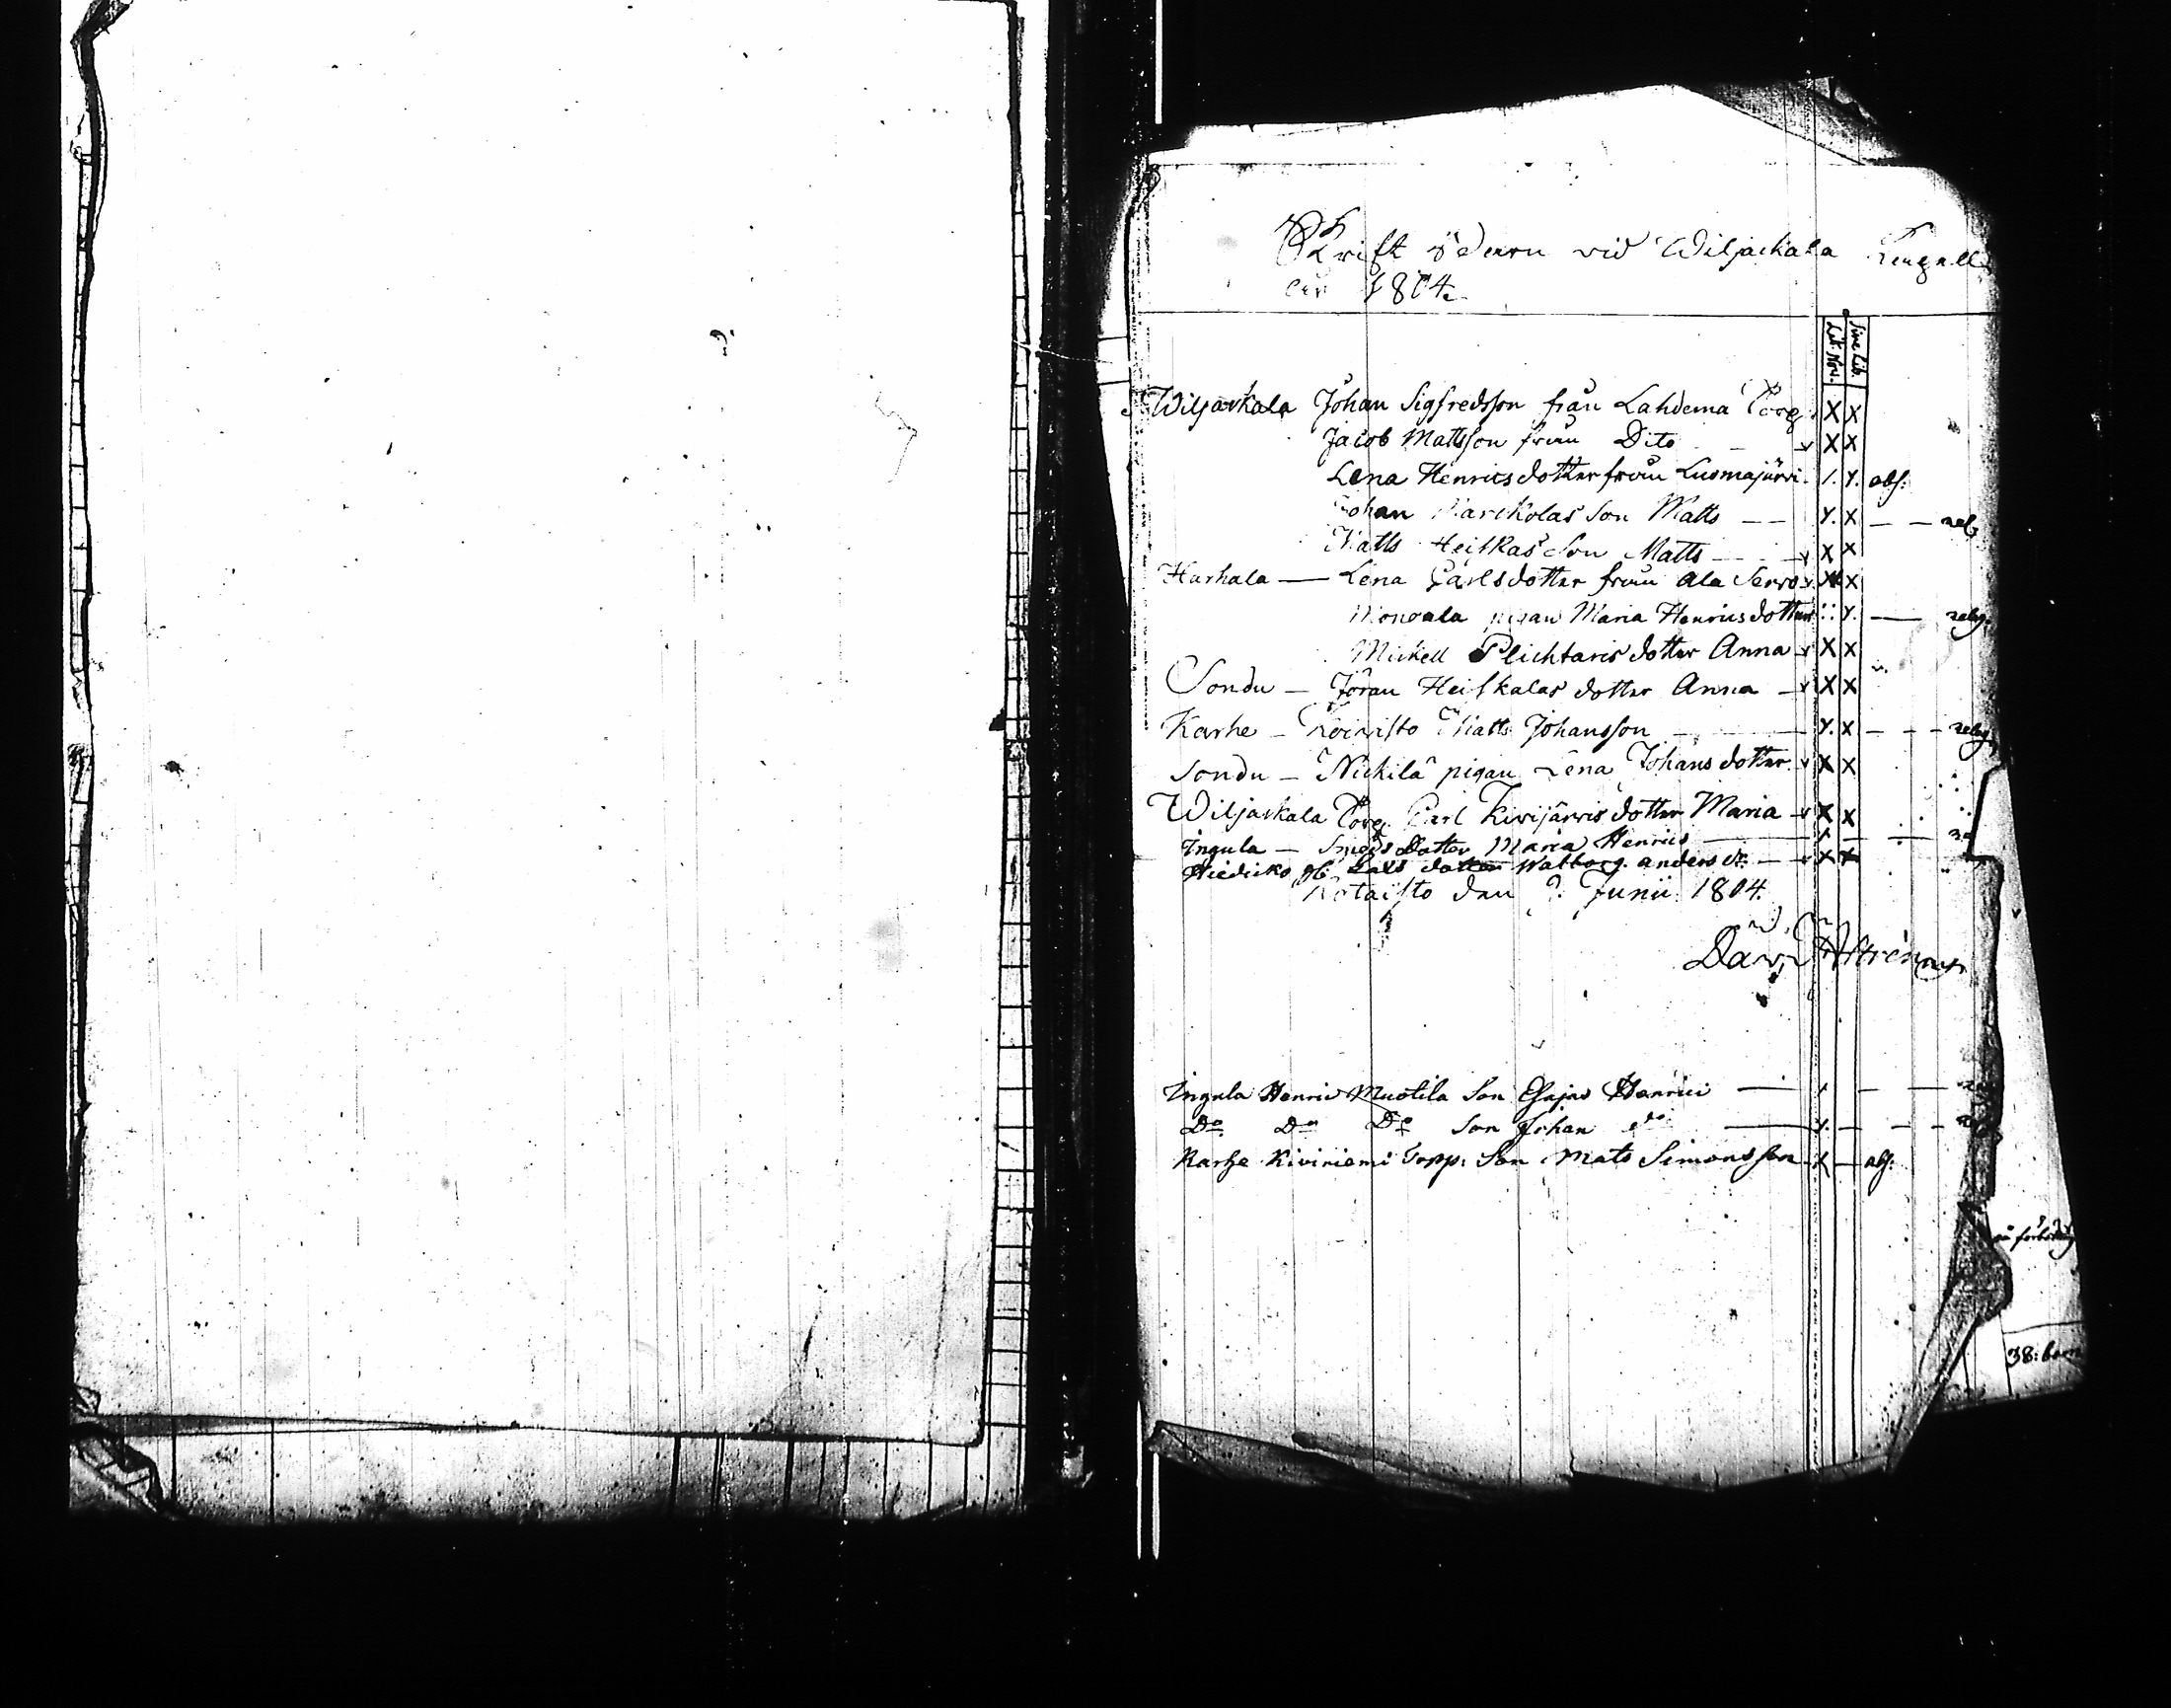 Skrift Öfvern vid Wiljackala Cappell
år 1804.
Lit. Nov. Sine Lib.
Wiljackala Johan Sigfredsson från Lahdema Torp X X
Jacob Mattsson från Dito X X
Lena Henricsdotter från Luomajärvi /. Y. abs:
Johan Marckolas Son Matts Y. X
Matts Heiskas Son Matts X X
Harhala Lena Carlsdotter från Ala X X
pigan Maria Henricsdotter Y.
Mickell Plichtaris dotter Anna X X
Sondu Jöran Heiskalas dotter Anna X X
Karhe Koivisto Matts Johansson Y. X
Sondu Nickilä pigan Lena Johansdotter X X
Wiljackala Torp. Carl Kivijärvis dotter Maria X X
Ingula Dotter Maria Henrics
Lars dotter Walborg anders dr. X X
den Junii 1804.
Ingula Henric Muotila Son Esajas Henrici
Do Do Do Son Johan do
Karhe Kiviniemi Torp: Son Mats Simonsson abs:
38: barn